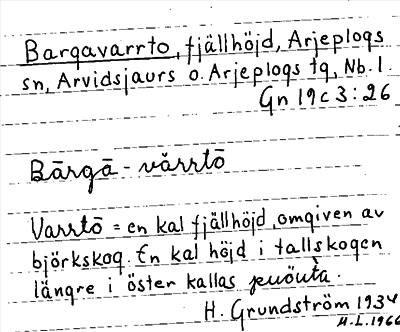 Bargavarrto, fjällhöjd, Arjeplogs
sn, Arvidsjaurs o. Arjeplogs tg, Nb. l.
Gn 19c 3:26
Bārgā - vărrtō
Varrtō = en kal fjällhöjd, omgiven av
björkskog. En kal höjd i tallskogen
längre i öster kallas
H. Grundström 1934
H.L. 1966